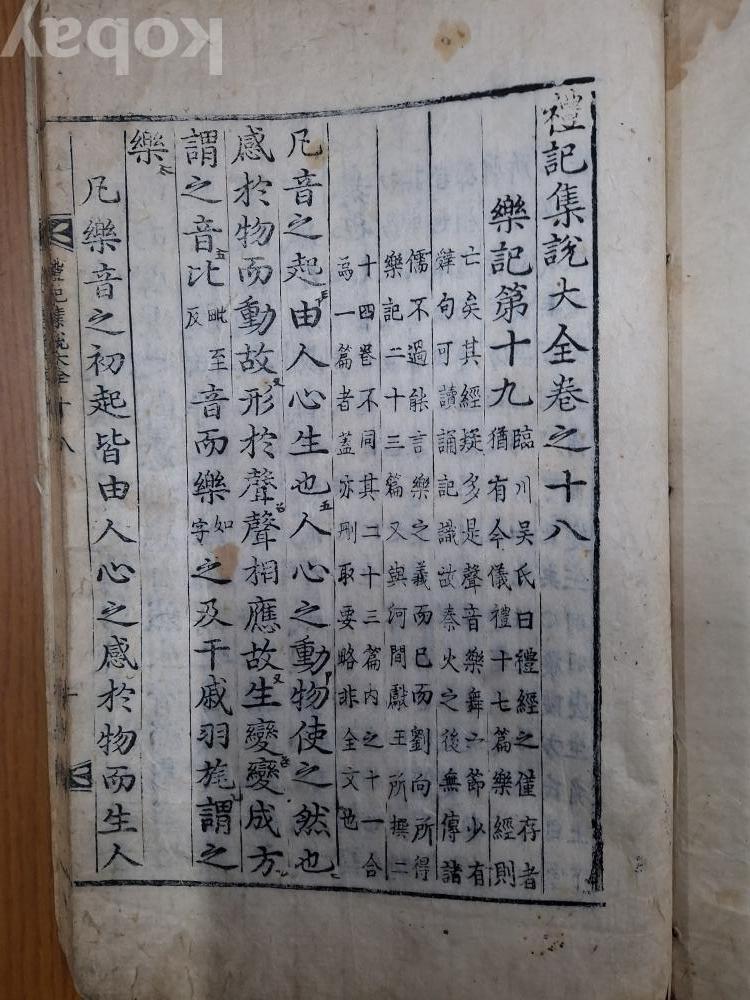 kobay
禮記集說大全卷之十八
樂記第十九 臨川吳氏曰禮經之僅存者
猶有今儀禮十七篇樂經則
亡矣其經疑多是聲音樂舞之節少有
辭句可讀誦記識故秦火之後無傳諸
儒不過能言樂之義而已而劉向所得
樂記二十三篇又與河間獻王所撰二
十四卷不同其二十三篇內之十一合
爲一篇者蓋亦刪取要略非全文也
凡音之起由人心生也人心之動物使之然也
感於物而動故形於聲聲相應故生變變成方
謂之音比毗至反音而樂如字之及干戚羽旄謂之
樂
凡樂音之初起皆由人心之感於物而生人
禮記集說大全 十八
一